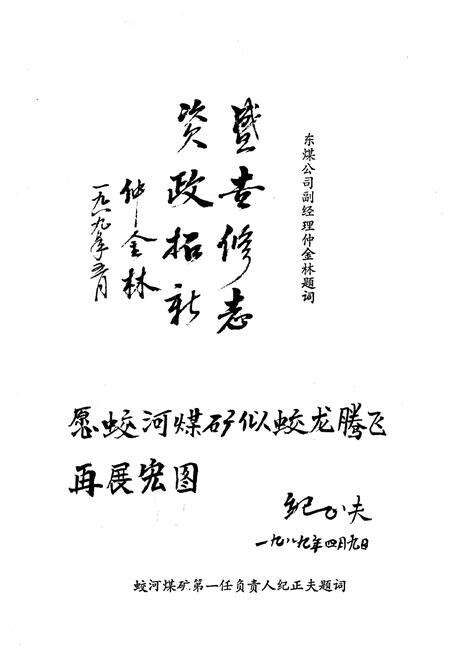 东煤公司副经理仲金林题词
盛世修志
资政拓新
仲金林
一九八九年五月
愿蛟河煤矿似蛟龙腾飞
再展宏图
纪正夫
一九八九年四月九日
蛟河煤矿第一任负责人纪正夫题词